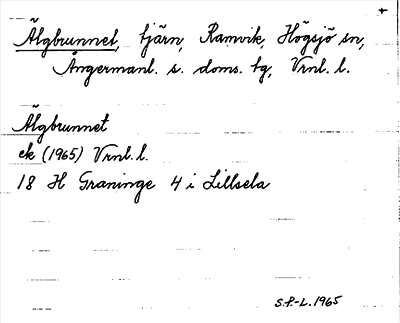 Älgbrunnet, tjärn, Ramvik, Högsjö sn,
Ångermanl. s. doms. tg, Vrnl. l.
Älgbrunnet
ek (1965) Vrnl. l.
18 H Graninge 4 i Lillsela
S.P.-L. 1965